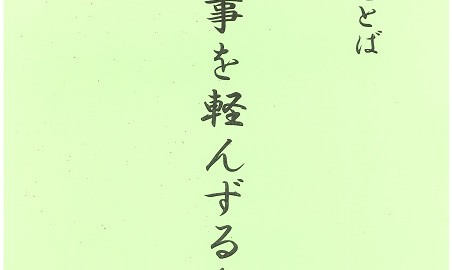 とば
事を軽んずる